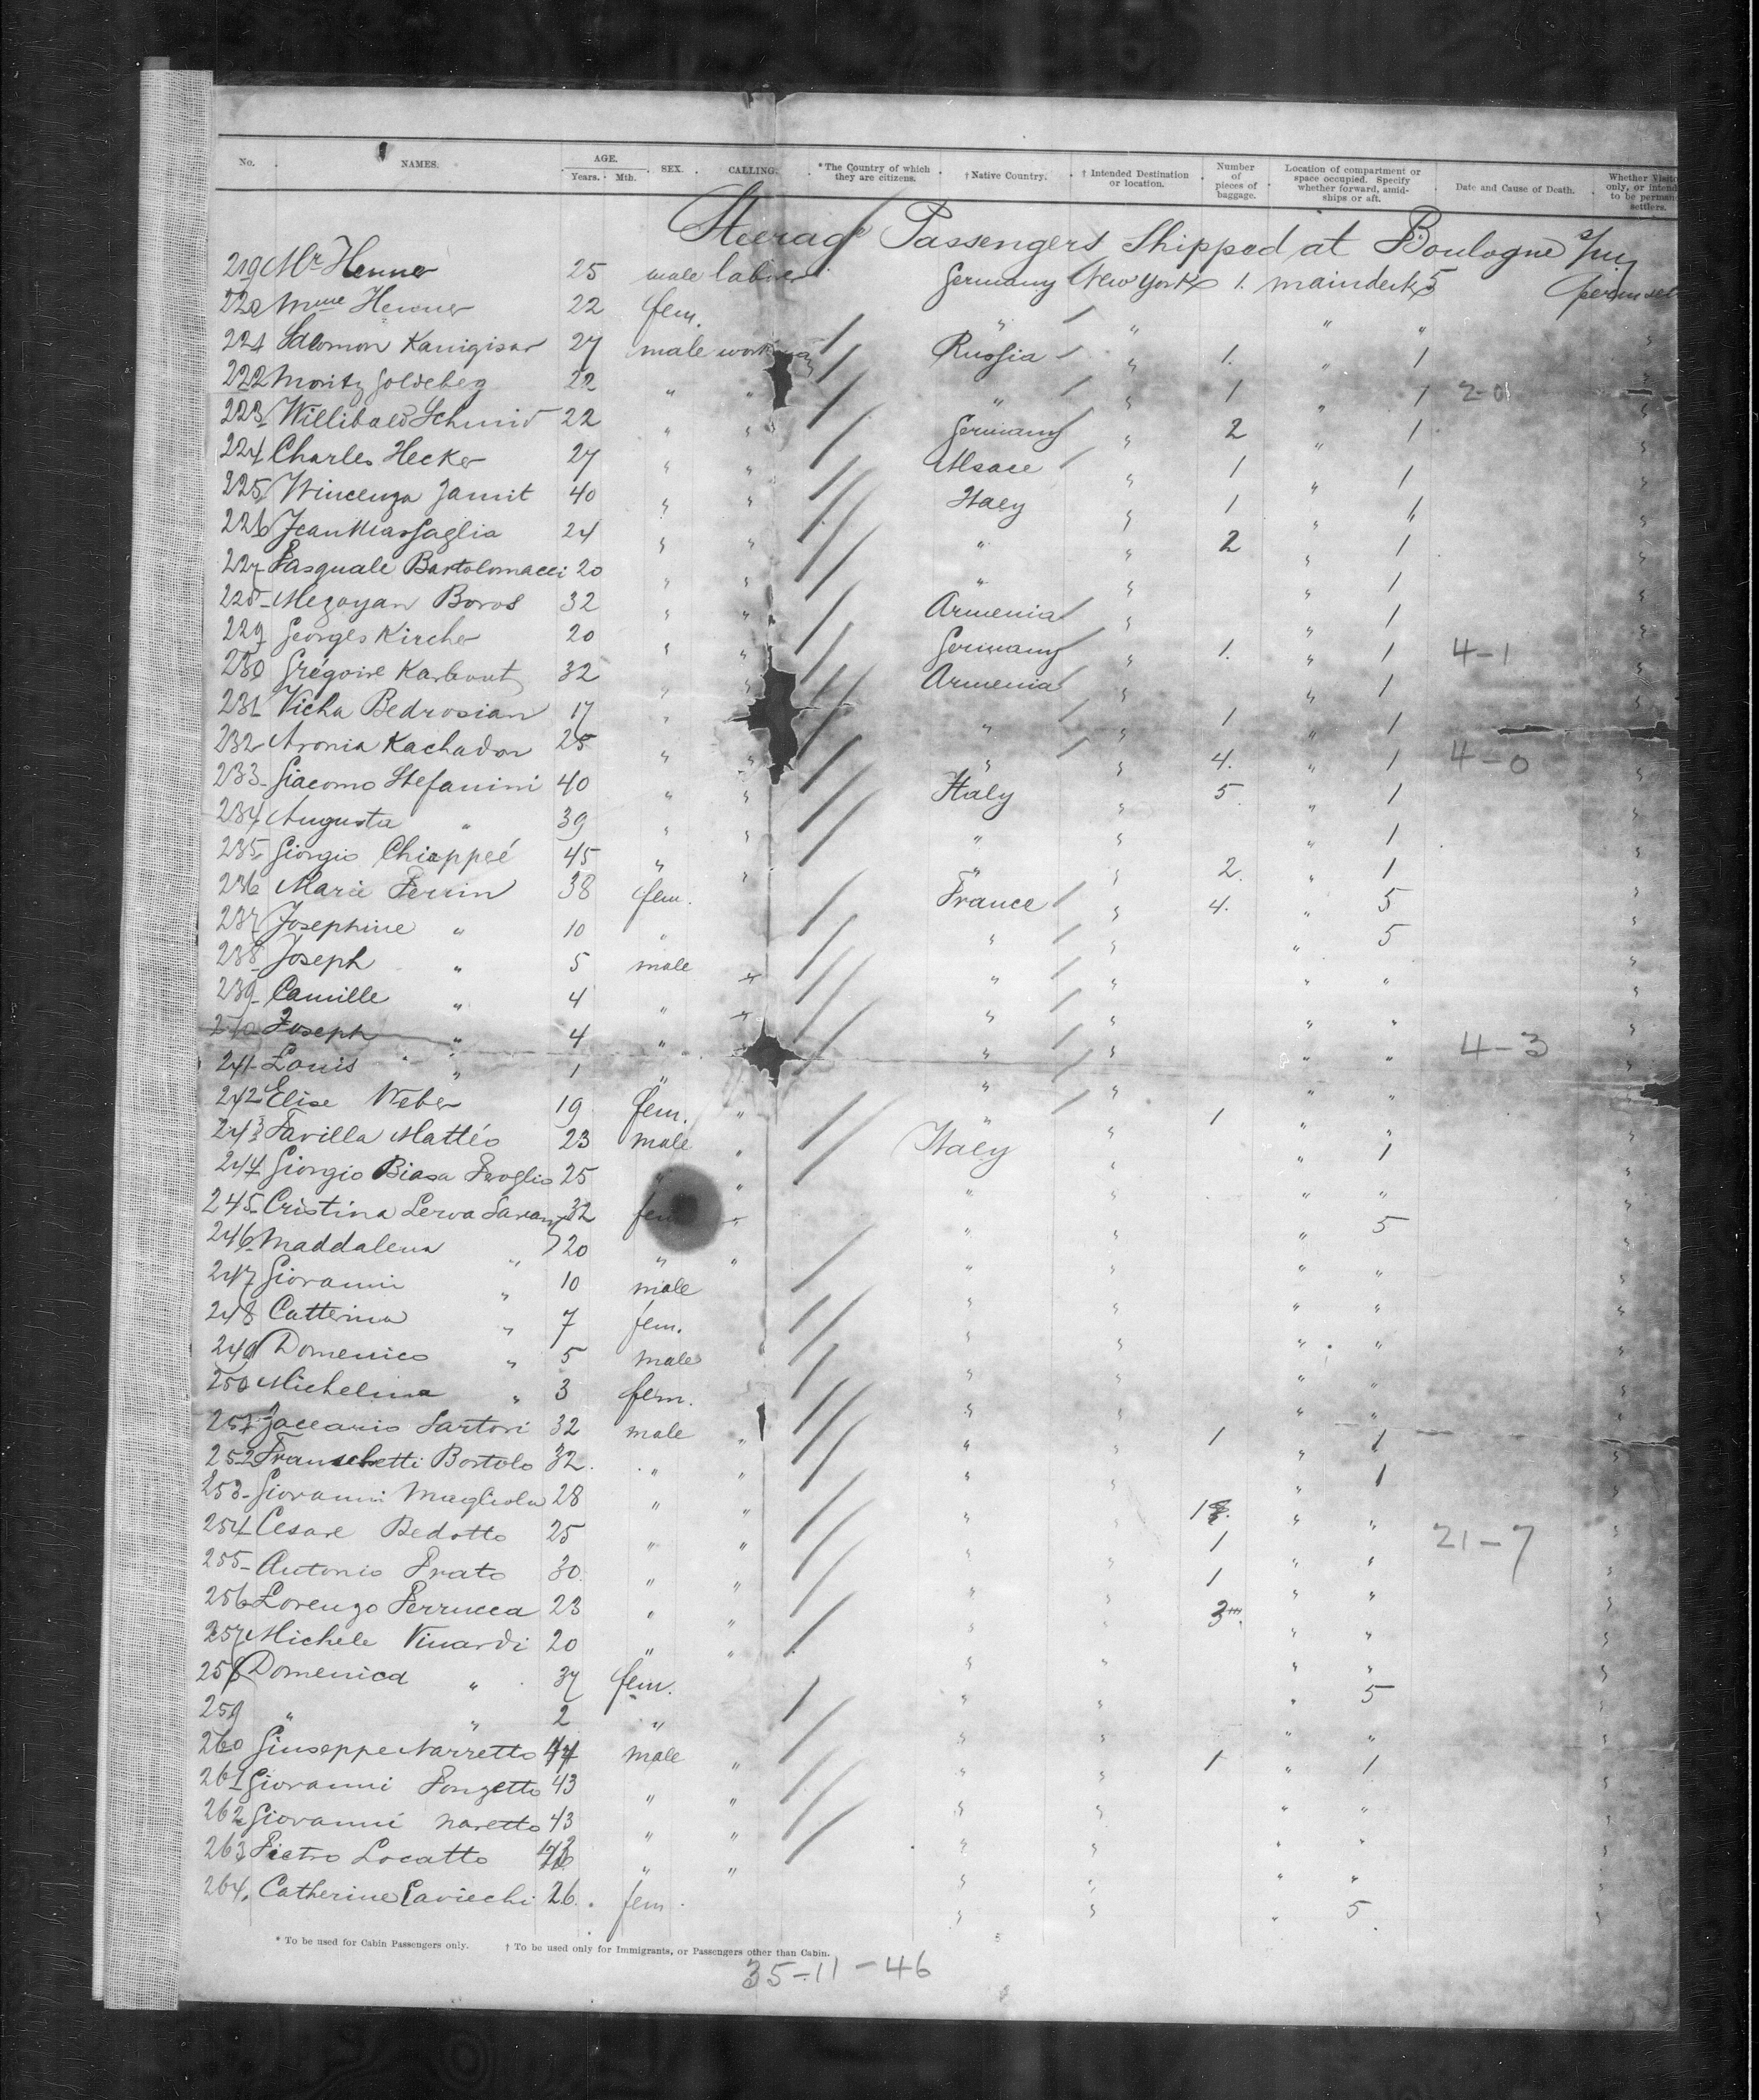 No. NAMES. AGE. Years. Mth. SEX. CALLING. *The Country of which they are citizens. †Native Country. †Intended Destination or location. Number of pieces of baggage. Location of compartment or space occupied. Specify whether forward, amidships or aft. Date and Cause of Death. Whether Visito only, or intend to be perman settlers.
Steerage Passengers Shipped at Boulogne s/m
219 Mr Henner 25 male labour Germany New York 1. maindeck 5
220 Mme Henner 22 fem. " " " "
221 Salomon Kanigisar 27 male Russia " 1. " 1
222 Moritz Goldeberg 22 " " " " 1 " 1 2-0
223 Willibald Schmid 22 " " Germany " 2 " 1
224 Charles Hecker 27 " " Alsace " 1 " 1
225 Wincenza Jamit 40 " " Italy " 1 " "
226 Jean Massaglia 24 " " " " 2 " 1
227 Pasquale Bartolomacci 20 " " " " " 1
228 Mezoyan Boros 32 " " Armenia " " 1
229 Georges Kircher 20 " " Germany " 1. " 1 4-1
230 Grégoire Karbout 32 " " Armenia " " 1
231 Vicha Bedrosian 17 " " 1 " 1
232 Aronia Kachador 25 " " " " 4. " 1 4-0
233 Giacomo Stefanini 40 " " Italy " 5. " 1
234 Augusta " 39 " " " " " 1
235 Giorgio Chiappeé 45 " " " " 2. " 1
236 Marie Perrin 38 fem. France " 4. " 5
237 Josephine " 10 " " " " 5
238 Joseph " 5 male " " " "
239 Camille " 4 " " " " "
240 Joseph " 4 " " " " " 4-3
241 Louis " 1 " " " " "
242 Elise Weber 19 fem. " " 1 " "
243 Favilla Mattéo 23 male " Italy " " 1
244 Giorgio Biasa Peroglio 25 " " " " " "
245 Cristina Lerva Savan 32 fem " " " " 5
246 Maddalena " 20 " " " " " "
247 Giovanni " 10 male " " " "
248 Catterina " 7 fem. " " " "
249 Domenico " 5 male " " " "
250 Michelina " 3 fem. " " " "
251 Zaccario Sartori 32 male " " " 1 " 1
252 Franschetti Bortolo 32. " " " " " 1
253 Giovanni Magliola 28 " " " " " "
254 Cesare Bedotto 25 " " " " 1 " " 21-7
255 Antonio Prato 30. " " " " 1 " "
256 Lorenzo Perrucca 23 " " " " 3 " "
257 Michele Vinardi 20 " " " " "
258 Domenica " 37 fem. " " " 5
259 " " 2 " " " " "
260 Giuseppe Narretto 44 male " " " 1 " 1
261 Giovanni Ponzetto 43 " " " " " "
262 Giovanni Naretto 43 " " " " " "
263 Pietro Locatto " " " " " "
264. Catherine Caviechi 26. fem. " " " 5.
* To be used for Cabin Passengers only. † To be used only for Immigrants, or Passengers other than Cabin.
35-11-46